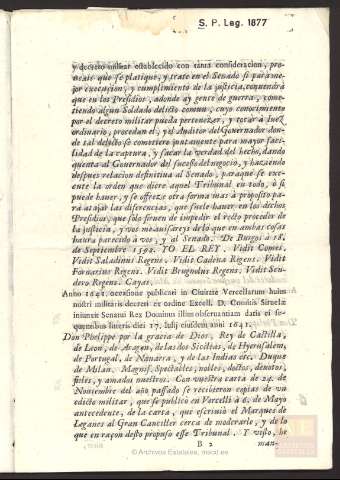 S. P. Leg. 1877
y decreto militar establecido con tanta consideracion, pro-
neais que se platique, y trate en el Senado si para me-
jor execucion, y cumplimiento de la justicia, conuendrà
que en los Presidios, adonde ay gente de guerra, come-
tiendo algun Soldado delicto comun, cuyo conocimiento
por el decreto militar pueda pertenezer, y tocar à Iuez
ordinario, procedan el, y el Auditor del Gouernador don-
de tal delicto se cometiere juntamente para mayor faci-
lidad de la captura, y sacar la verdad del hecho, dando
quenta al Gouernador del sucesso del negocio, y haziendo
despues relacion definitiua al Senado, para que se exe-
cute la orden que diere aquel Tribunal en todo, ò si
puede hauer, y se offreze otra forma mas à proposito pa-
ra atajar las diferencias, que suele hauer en los dichos
Presidios, que sólo siruen de impedir el recto proceder de
la justicia, y vos me auisareys de lo que en ambas cosas
haura parecido à vos, y al Senado. De Burgos à 18.
de Septiembre 1592. YO EL REY. Vidit Comes,
Vidit Saladinus Regens. Vidit Cadena Regens. Vidit
Fornarius Regens. Vidit Brugnolus Regens. Vidit Sen-
dero Regens. Cayas.
Anno 1641. occasione publicati in Ciuitate Vercellarum huius
nostri militaris decreti ex ordine Excell. D. Comitis Siruelæ
iniunxit Senatui Rex Dominus illius obseruantiam datis ei se-
quentibus literis diei 17. Iulij eiusdem anni 1641.
Don Phelippe por la gracia de Dios, Rey de Castilla,
de Leon, de Aragon, de las dos Sicilias, de Hyerusalem,
de Portugal, de Nauarra, y de las Indias etc. Duque
de Milan. Magnif. Spectables, nobles, doctos, deuotos,
fieles, y amados nuestros. Con vuestra carta de 24. de
Nouiembre del año passado se recibieron copias de un
edicto militar, que se publicò en Vercelli à 6. de Mayo
antecedente, de la carta, que escriuiò el Marques de
Leganes al Gran Canciller cerca de moderarle, y de lo
que en razon desto propuso esse Tribunal. Y visto, he
B 2
man-
© Archivos Estatales, mecd.es